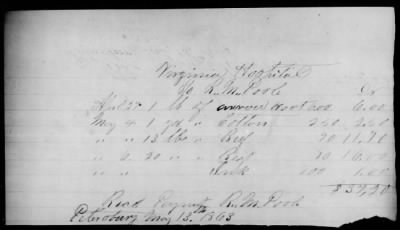 Virginia Hospital
To R. M. Poole Dr
Apl 27 1 lb of arrow root 600 6.00
May 4 1 yd " Cotton 2.20
" " 13 lbs " Beef 11.70
" 20 " Beef 16.00
" Ink 100 1.00
$37,20
Recd Paymt R. M. Poole
Petersburg May 13th 1863